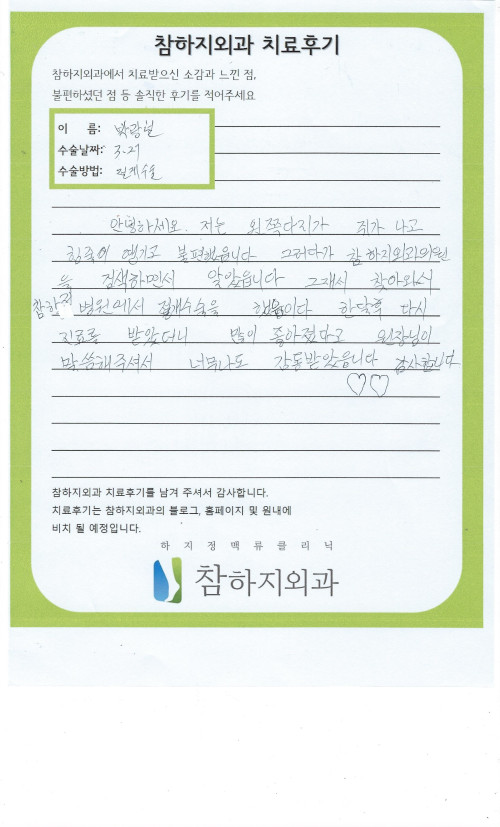 참하지외과 치료후기
참하지외과에서 치료받으신 소감과 느낀 점,
불편하셨던 점 등 솔직한 후기를 적어주세요
이 름:
수술날짜: 3.27
수술방법: 절개수술
안녕하세요. 저는 왼쪽다리가 쥐가 나고
힘줄이 엉기고 불편했읍니다 그러다가 참하지외과의원
을 검색하면서 알았읍니다 그래서 찾아와서
참하지 병원에서 절개수술을 했읍니다 한달후 다시
진료를 받았더니 많이 좋아졌다고 원장님이
말씀해주셔서 너무나도 감동받았읍니다 감사합니다
♡♡
참하지외과 치료후기를 남겨 주셔서 감사합니다.
치료후기는 참하지외과의 블로그, 홈페이지 및 원내에
비치 될 예정입니다.
하지정맥류클리닉
참하지외과